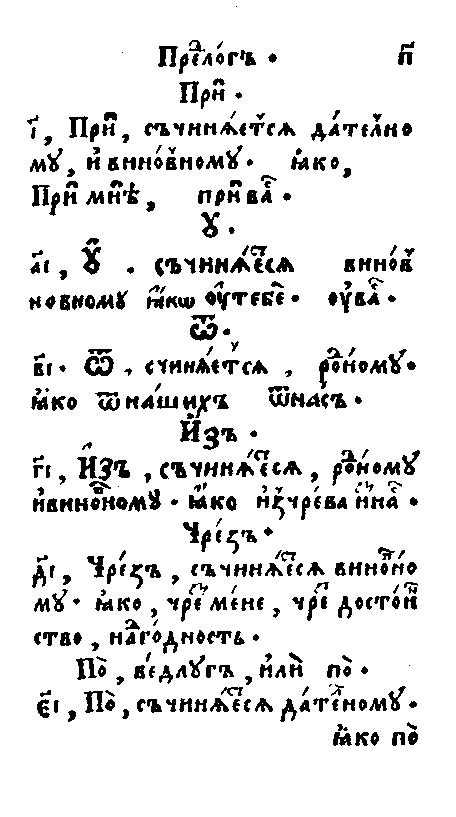 Прⷣелóгъ · п҃
Прѝ ·
і҃, Прѝ, съчинѧ́етⸯсѧ да́телⸯно
мꙋ, и҆ виновⸯномꙋ · ꙗ҆́ко,
При̏ мнѣ̏, при ва́с ·
Ꙋ ·
а҃і, Ꙋ̏ · съчинѧ́еⷭ҇сѧ винов
новномꙋ ꙗ҆́кѡ ᲂу҆ тебе̏ · ᲂу҆ ва́с ·
Ѿ ·
в҃і · Ѿ, счинѧ́етⸯсѧ, роⷣномꙋ ·
ꙗ҆́ко ѿ на́шихъ ѿ на́съ ·
И҆́зъ ·
г҃і, И҆́зъ, съчинѧ́еⷭ҇сѧ, роⷣномꙋ
и҆ виноⷡномꙋ · ꙗ҆́ко и҆з̾ чре́ва
Чре́зъ ·
д҃і, Чре́зъ, съчинѧ́еⷭ҇сѧ виноⷡно
мꙋ · ꙗ҆́ко, чреⷥ ме́не, чреⷥ досто́и
ство, на́гоⷣность ·
По̀, ве́длꙋгъ, и҆лѝ по̀ ·
є҃і, По̀, съчинѧ́еⷭ҇сѧ да́теⷧному ·
ꙗ҆́ко по̀